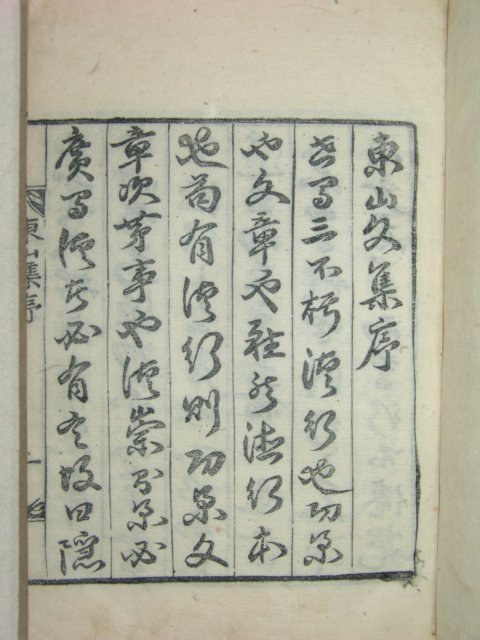 東山文集序
古有三不朽德行也功業
也文章也雖然德行本
也苟有德行則功業文
章次第事也德崇則業必
廣有德者必有言故曰隱
東山集序
一